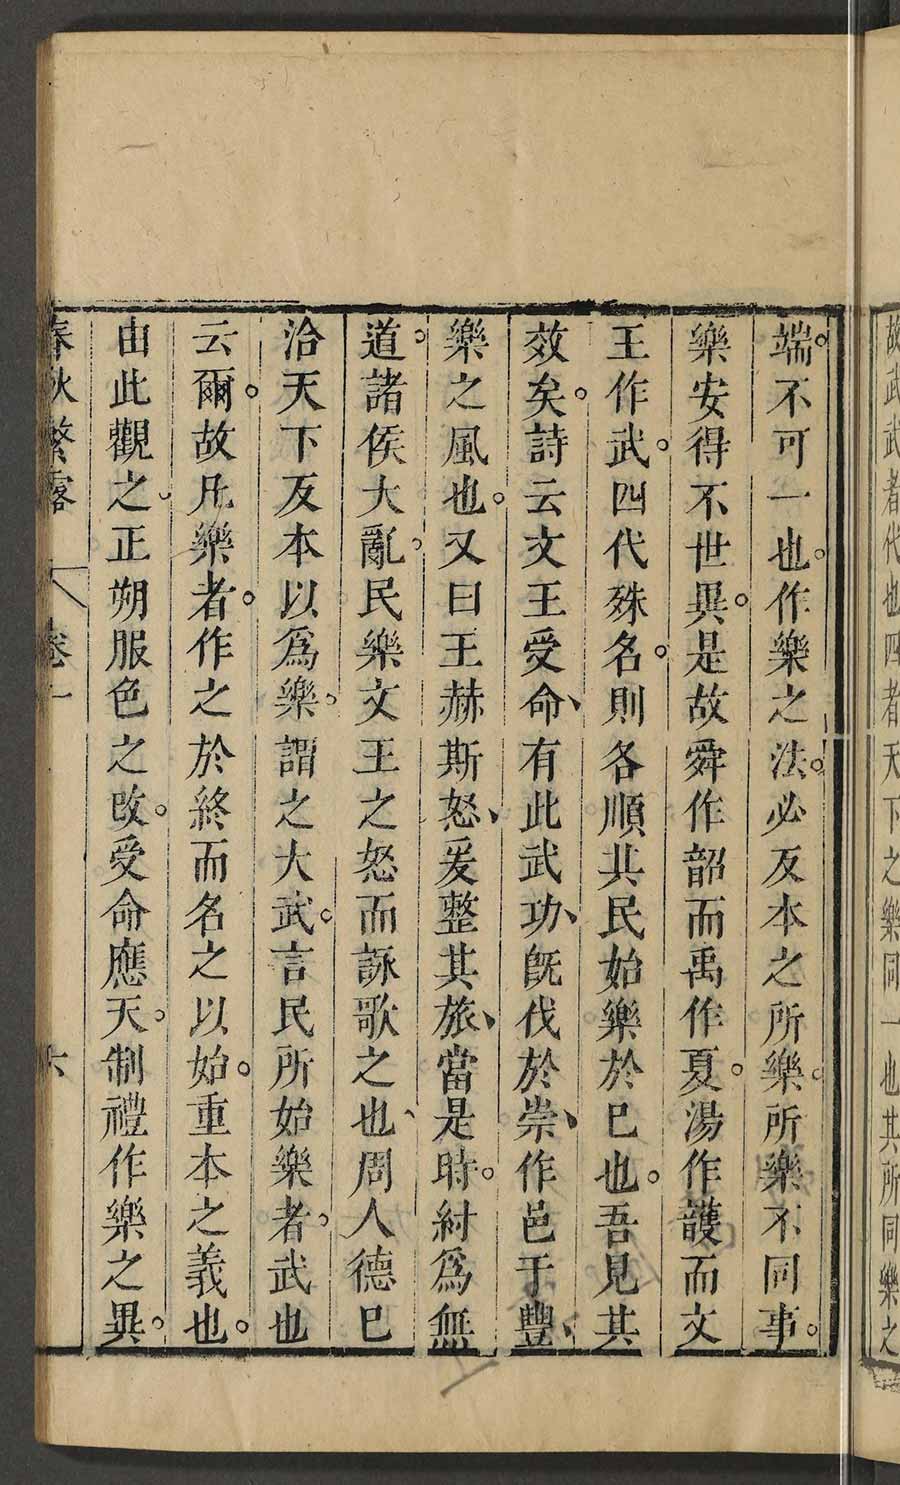 故武武者伐也四者天下之樂同一也其所同樂之
端。不可一也。作樂之法。必反本之所樂。所樂不同事。
樂安得不世異。是故舜作韶而禹作夏。湯作頀而文
王作武。四代殊名。則各順其民始樂於已也。吾見其
效矣。詩云文王受命、有此武功、旣伐於崇、作邑于豐、
樂之風也。又曰王赫斯怒、爰整其旅、當是時。紂爲無
道。諸侯大亂。民樂文王之怒而詠歌之也、周人德已
洽天下反本以爲樂。謂之大武。言民所始樂者。武也
云爾。故凡樂者。作之於終而名之以始。重本之義也。
由此觀之、正朔服色之改。受命應天。制禮作樂之異。
春秋繁露 卷一 六